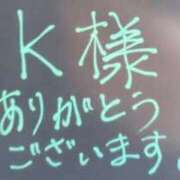 K様
ありがとう
ございます。